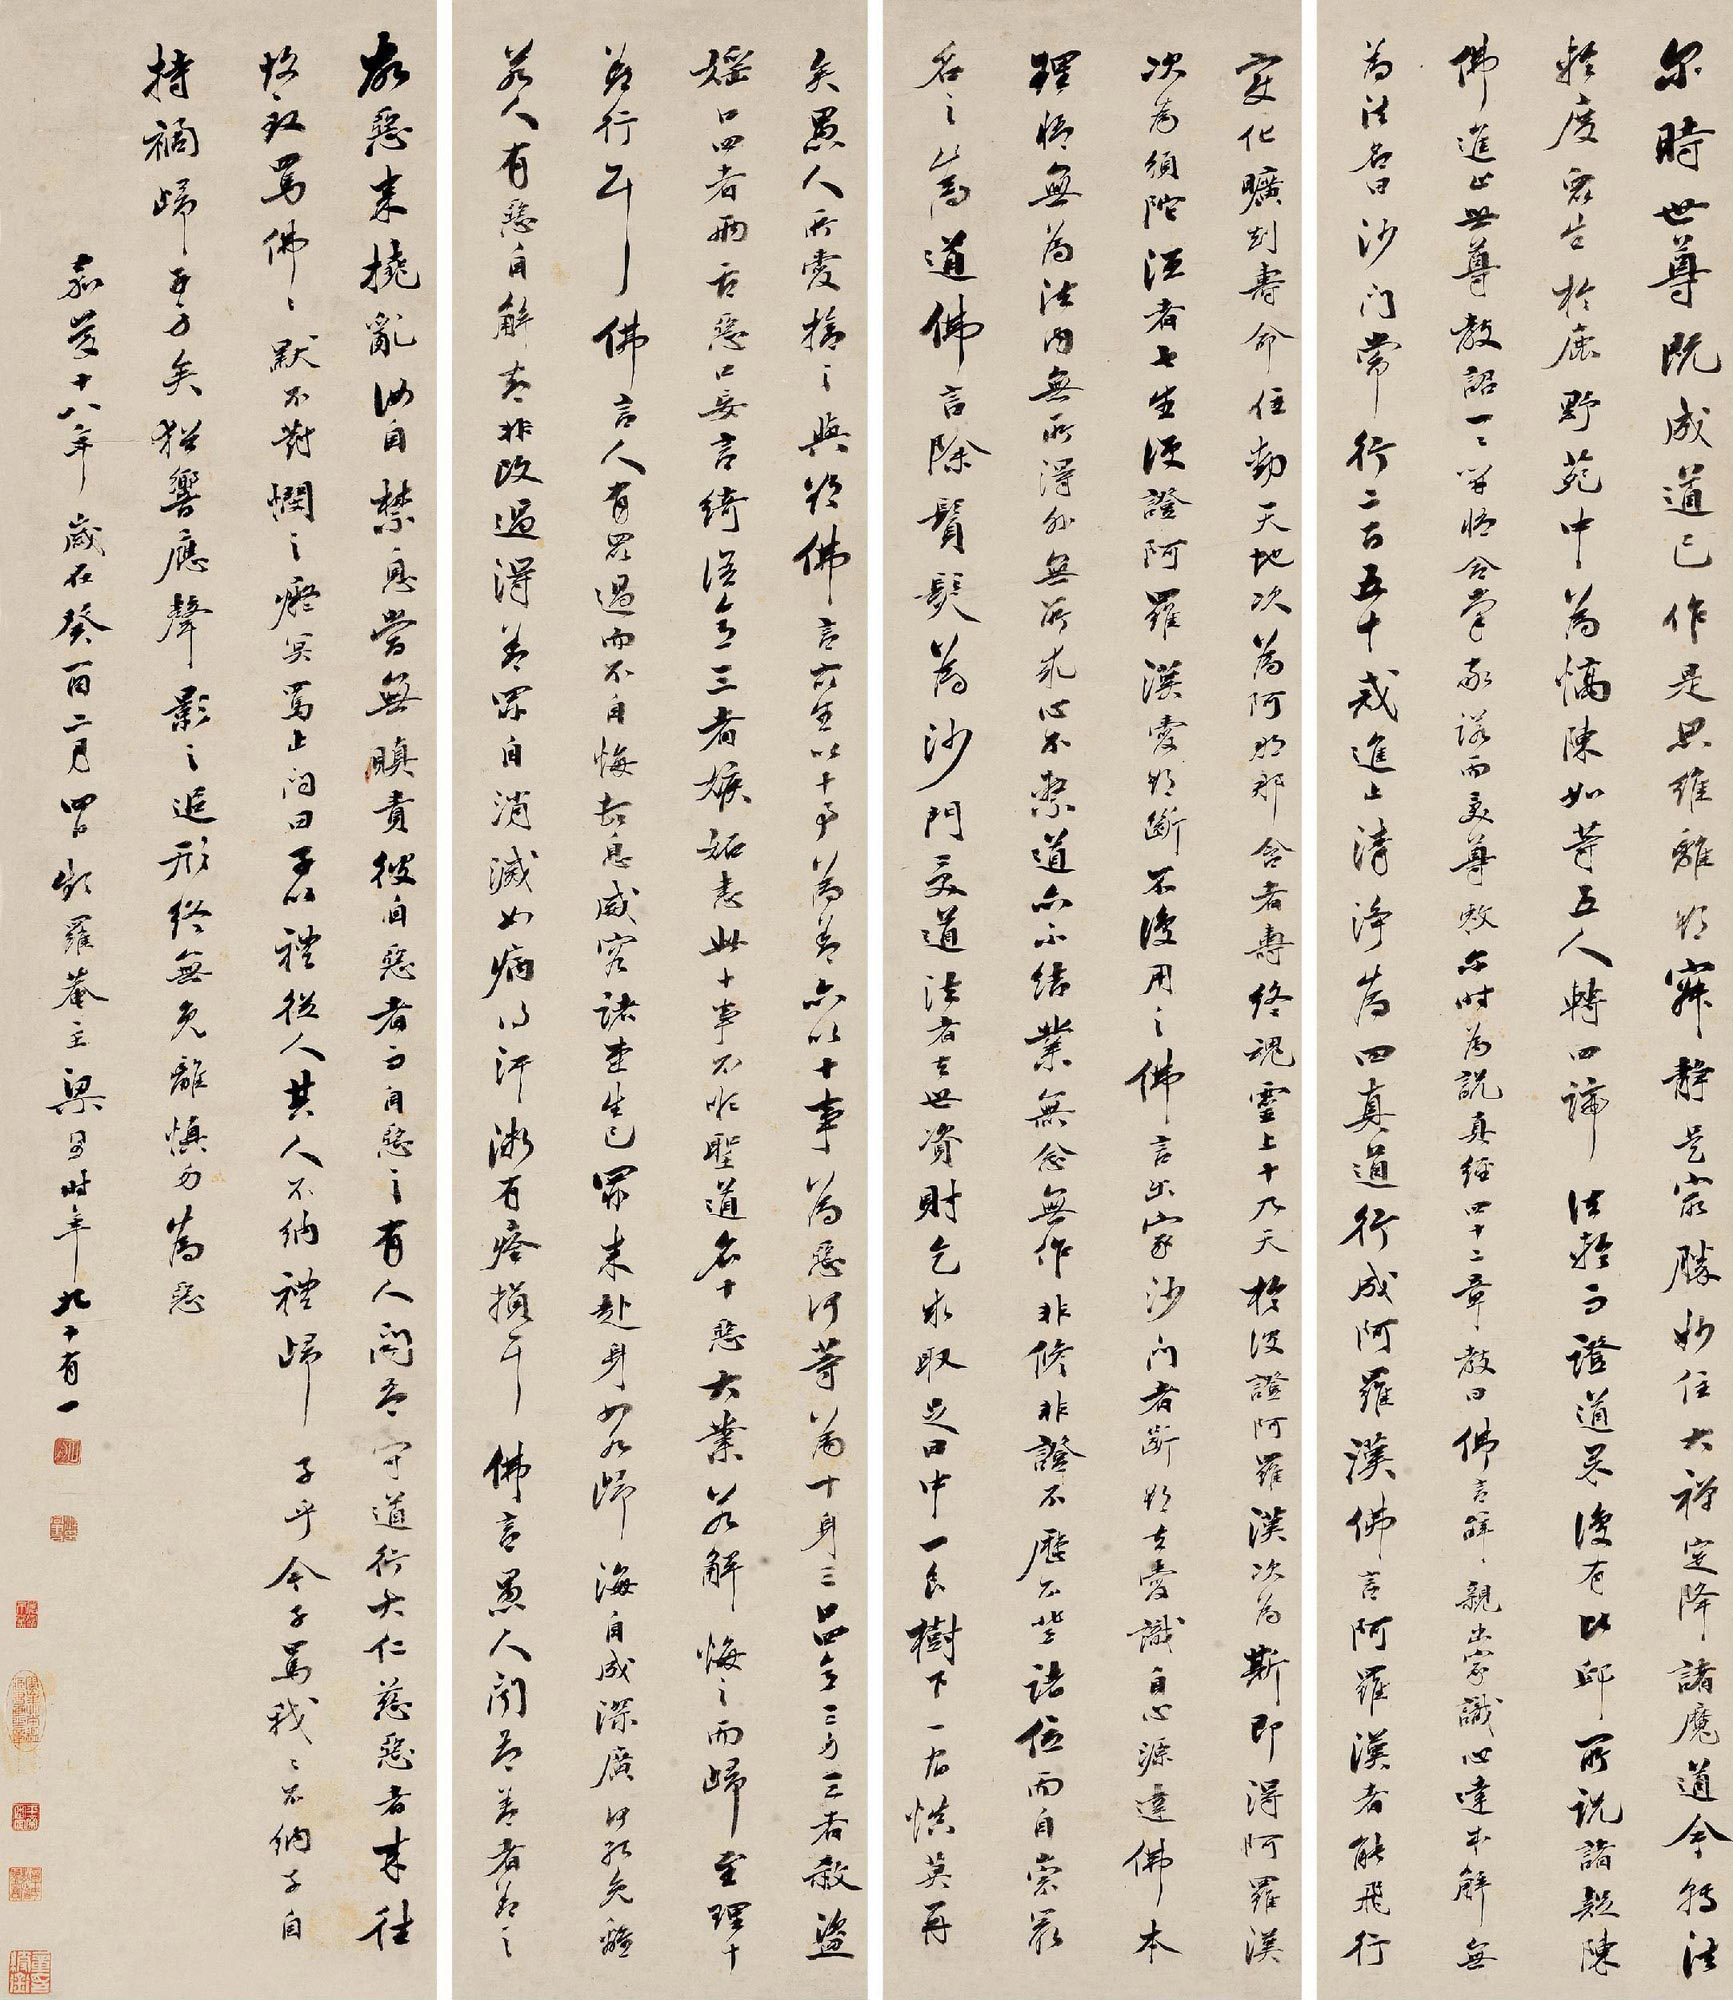 尔時世尊既成道已作是思維離欲寂靜是最勝妙住大禅定降諸魔道今轉法
輪度眾生於鹿野苑中為憍陳如等五人轉四諦法輪而證道果復有比邱所說諸疑陳
佛進止世尊教詔一一開悟合掌敬諾而受尊敕尔时為説真經四十二章教曰佛言辞親出家識心達本解無
為法名曰沙门常行二百五十戒進止清淨為四真道行成阿羅漢佛言阿羅漢者能飛行
變化曠劫壽命住動天地次為阿那含者壽終魂靈上十九天於彼證阿羅漢次為斯即得阿羅漢
次為須陀洹者七生便證阿羅漢愛欲斷不復用之佛言出家沙门者断欲去愛識自心源達佛本
理悟無為法内無所得外無所求心不繫道亦不結業無念無作非修非證不歷不登諸位而自崇最
名之為道佛言除鬚髮為沙門受道法者去世資財乞求取足日中一食樹下一宿慎莫再
矣愚人所愛捨之與欲佛言众生以十事為善亦以十事為惡何等為十身三口四意三身三者殺盜
婬口四者兩舌惡口妄言綺語意三者嫉妬恚此十事不順聖道名十惡大業若解悔之而歸至理十
善行耳佛言人有眾過而不自悔頓息威容諸惡生已罪来赴身如水歸海自成深廣何能免離
若人有惡自解知非改過得善罪自消滅如病得汗漸有痊損耳佛言愚人聞吾善者善之
故惡来撓亂汝自禁息當無瞋責彼自惡者而自惡之有人聞吾守道行大仁慈惡者来往
故致罵佛佛默不對憫之癡冥罵止问曰子以禮從人其人不纳禮歸子乎今子罵我我不納子自
持禍歸子身矣猶響應聲影之追形終無免離慎勿為惡
嘉慶十八年歲在癸酉二月四日頻羅菴主梁同書时年九十有一